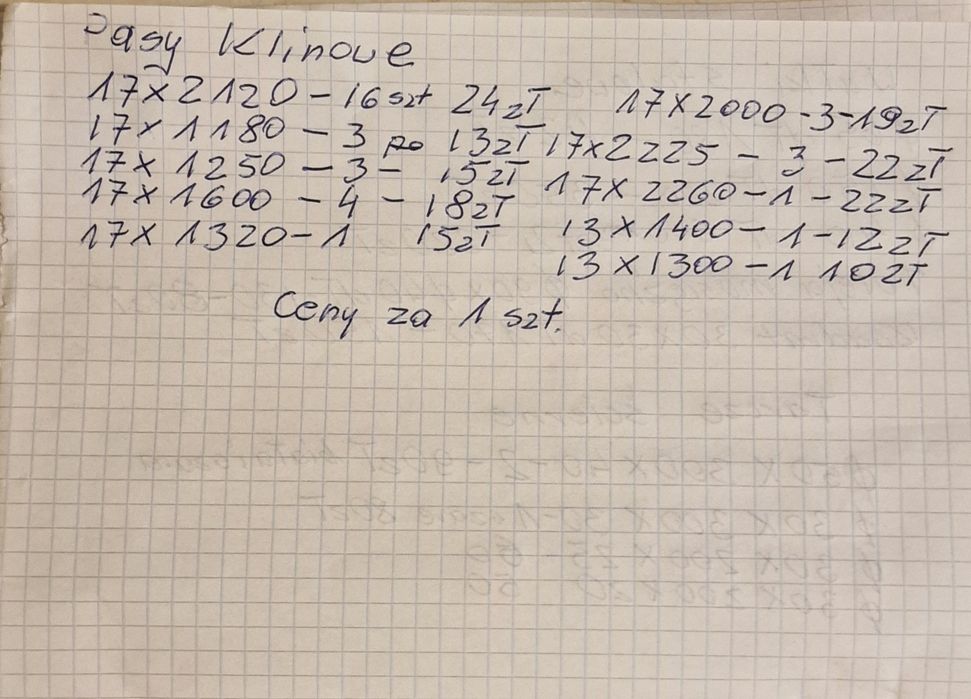 Pasy Klinowe
17x2120 - 16szt 24zł
17x1180 - 3 po 13zł
17x1250 - 3 - 15zł
17x1600 - 4 - 18zł
17x1320 - 1 15zł
17x2000 - 3 - 19zł
17x2225 - 3 - 22zł
17x2260 - 1 - 22zł
13x1400 - 1 - 12zł
13x1300 - 1 10zł
Ceny za 1 szt.